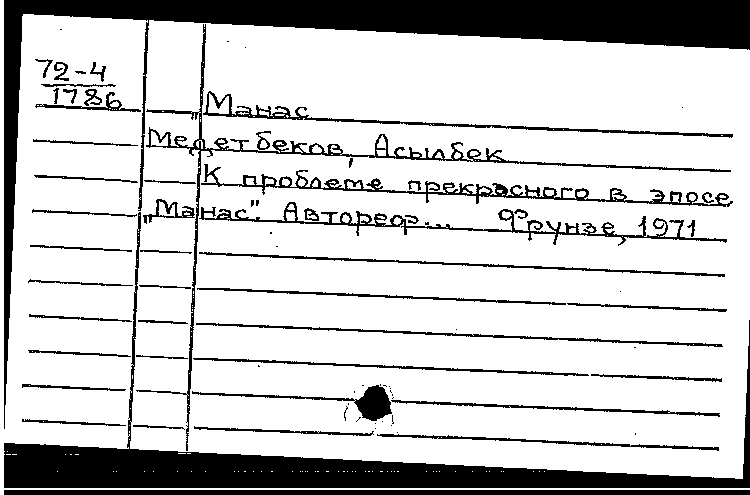 72-4
1786
„Манас
Медетбеков, Асылбек
К проблеме прекрасного в эпосе
„Манас". Автореф... Фрунзе, 1971